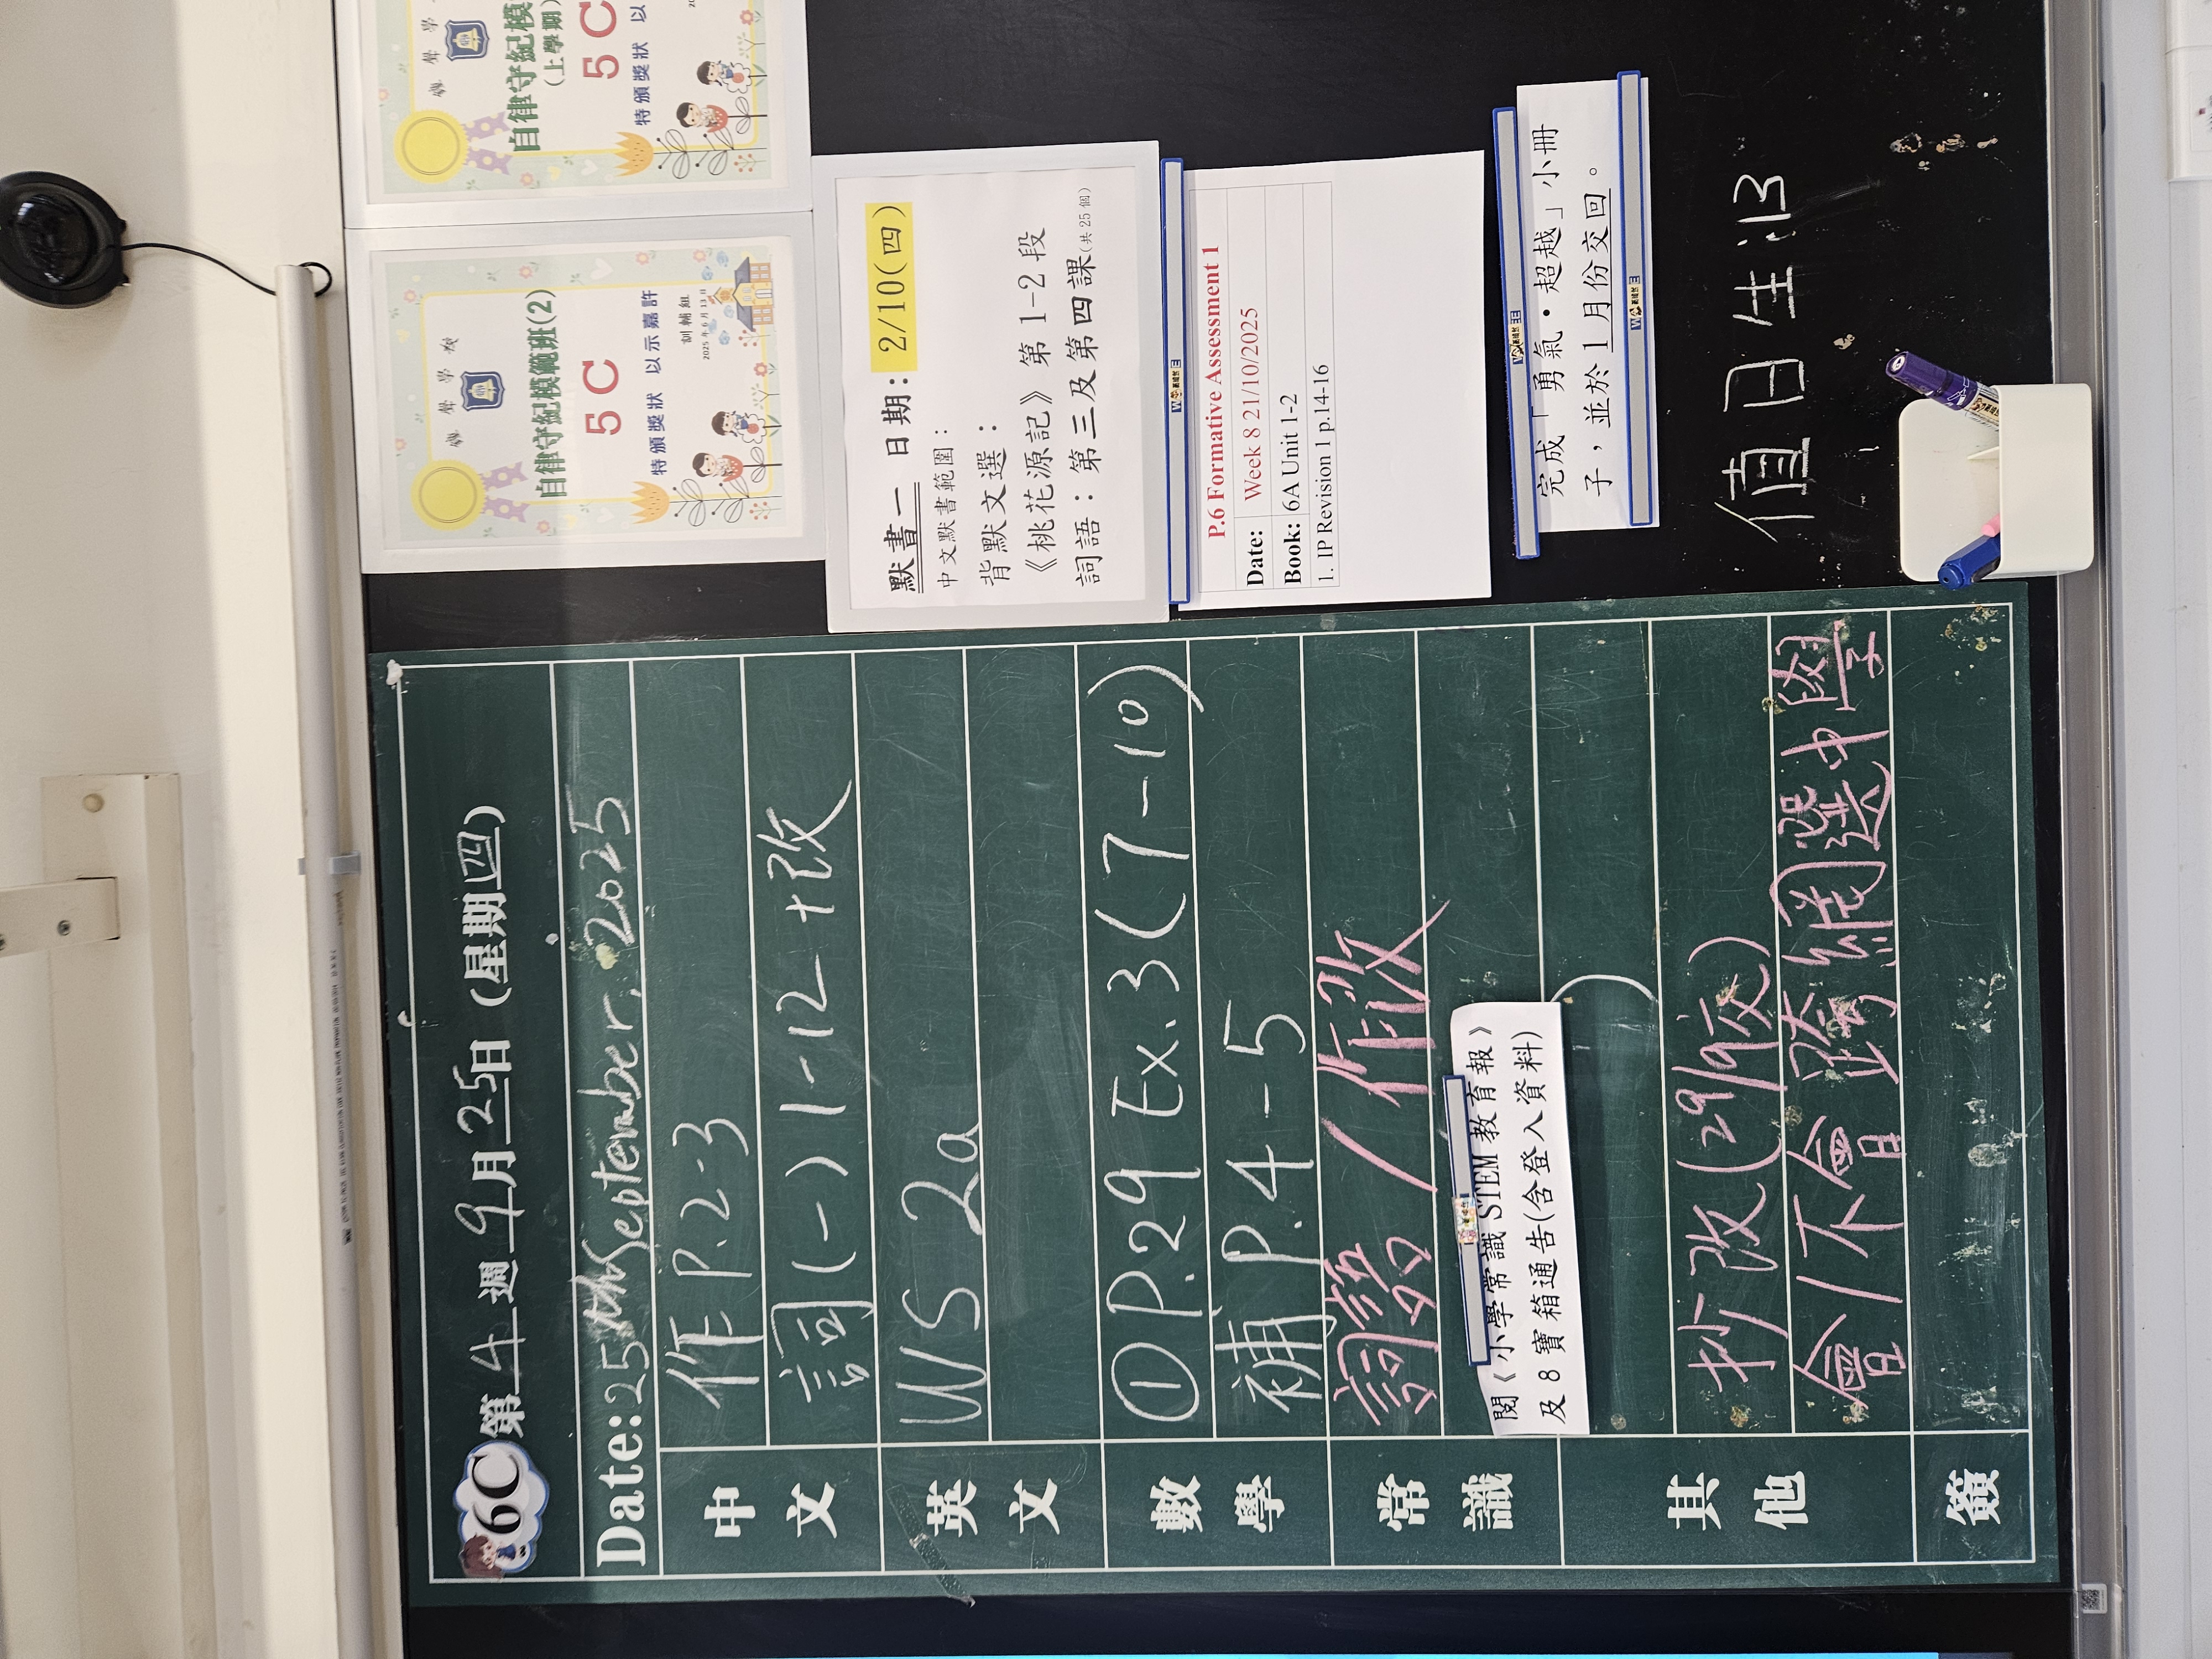 6C 第4週9月25日(星期四)
Date:25th September, 2025
中文
作 P.2-3
詞(一) 1-12+改
英文
WS 2a
數學
① P.29 Ex.3(7-10)
補 P.4-5
常識
/作改
閱《小學常識 STEM 教育報》
及 8 寶箱通告(含登入資料)
其他
抄改(29/9交)
會/不會跨網選中學
簽
自律守紀模範班(2)
5C
特頒獎狀 以示嘉許
訓輔組
2025年6月13日
自律守紀模
(上學期)
5C
特頒獎狀 以
默書一 日期: 2/10(四)
中文默書範圍:
背默文選:
《桃花源記》第 1-2 段
詞語:第三及第四課(共25個)
P.6 Formative Assessment 1
Date: Week 8 21/10/2025
Book: 6A Unit 1-2
1. IP Revision 1 p.14-16
完成「勇氣・超越」小冊
子,並於 1 月份交回。
值日生:13